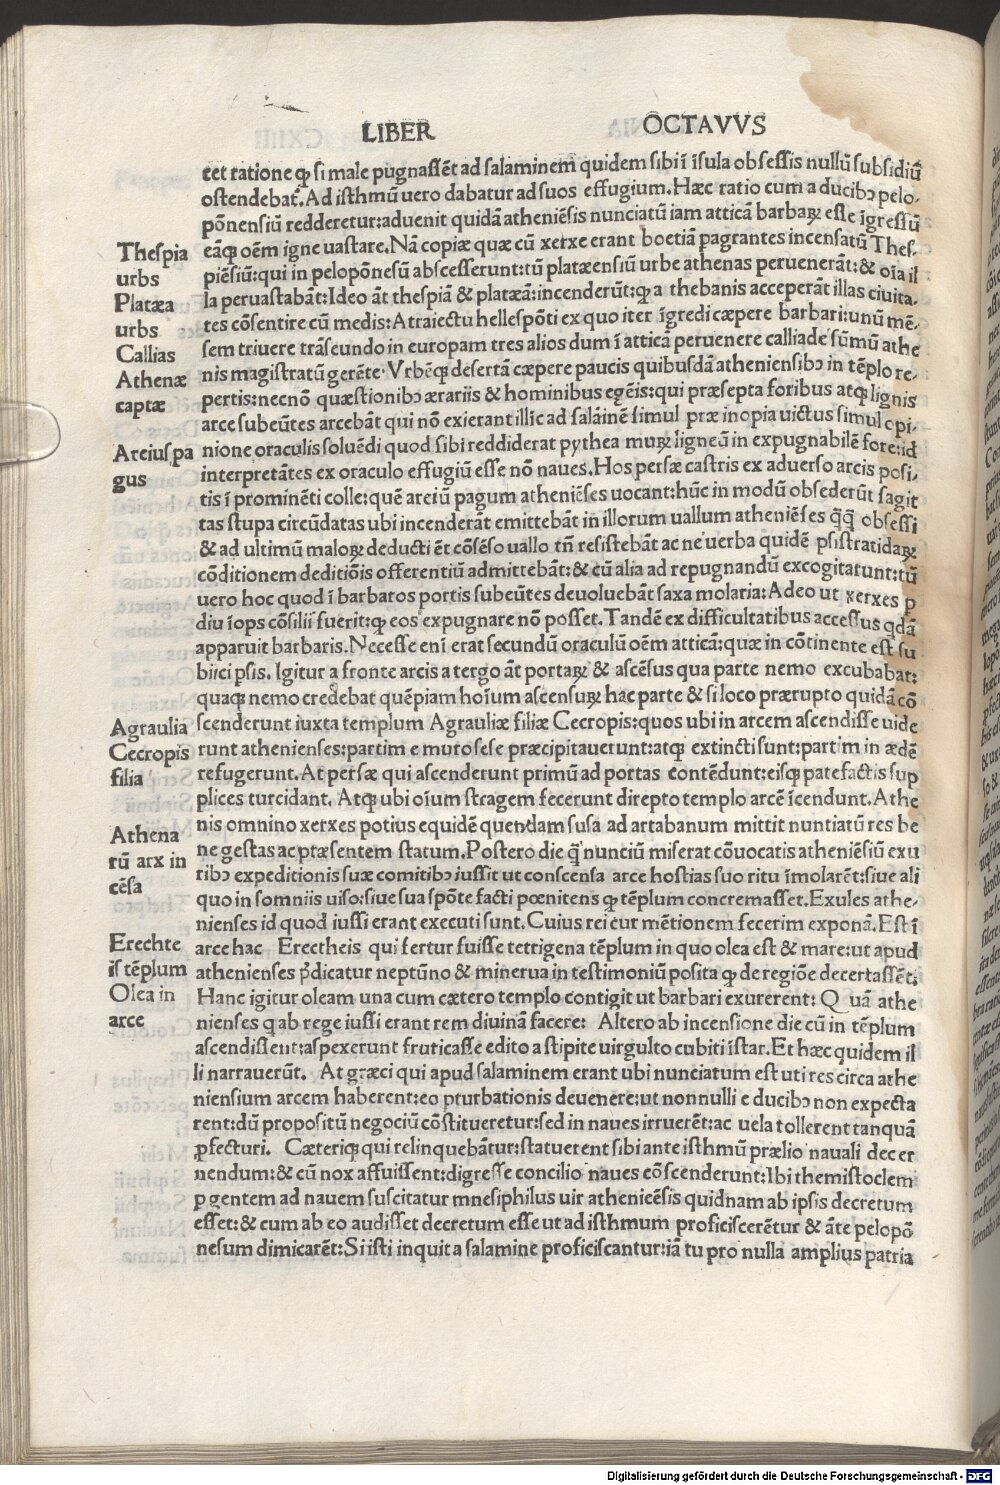 LIBER OCTAVVS
cet ratione ꝙ si male pugnassẽt ad salaminem quidem sibi ĩ ĩsula obsessis nullũ subsidiũ
ostendebat̃. Ad isthmũ uero dabatur ad suos effugium. Hæc ratio cum a ducibꝰ pelo-
põnensiũ redderetur: aduenit quidã atheniẽsis nunciatũ iam atticã barbaꝝ esse ĩgressũ
Thespia
urbs
Platæa
urbs
Callias
Athenæ
captæ
eãqꝫ oẽm igne uastare. Nã copiæ quæ cũ xerxe erant boetiã pagrantes incensatũ Thes-
piẽsiũ: qui in pelopõnesũ abscesserunt: tũ platæensiũ urbe athenas peruenerãt: & oĩa il
la peruastabãt: Ideo ãt thespiã & platæã: incenderũt: ꝙ a thebanis acceperãt illas ciuita-
tes cõsentire cũ medis: A traiectu hellespõti ex quo iter ĩgredi cæpere barbari: unũ mẽ-
sem triuere trãseundo in europam tres alios dum ĩ atticã peruenere calliade sũmũ athe
nis magistratũ gerẽte. Vrbẽqꝫ desertã cæpere paucis quibusdã atheniensibꝰ in tẽplo re-
pertis: necnõ quæstionibꝰ ærariis & hominibus egẽis: qui præsepta foribus atqꝫ lignis
arce subeũtes arcebãt qui nõ exierant illic ad salainẽ simul præ inopia uictus simul opi-
Areiuspa
gus
nione oraculi soluẽdi quod sibi reddiderat pythea muꝝ ligneũ in expugnabilẽ fore: id
interpretãtes ex oraculo effugiũ esse nõ naues. Hos persæ castris ex aduerso arcis posi-
tis ĩ prominẽti colle: quẽ areiũ pagum atheniẽses uocant: hũc in modũ obsederũt sagit
tas stupa circũdatas ubi incenderãt emittebãt in illorum uallum atheniẽses q̃q̃ obsessi
& ad ultimũ maloꝝ deducti ẽt cõsẽso uallo tñ resistebãt ac ne uerba quidẽ psistratidaꝝ
cõditionem deditiõis offerentiũ admittebãt: & cũ alia ad repugnandũ excogitatunt: tũ
uero hoc quod ĩ barbaros portis subeũtes deuoluebãt saxa molaria: Adeo ut xerxes ꝑ
diu ĩops cõsilii fuerit: ꝙ eos expugnare nõ posset. Tandẽ ex difficultatibus accessus qdã
apparuit barbaris. Necesse enĩ erat secundũ oraculũ oẽm atticã: quæ in cõtinente est su
biici psis. Igitur a fronte arcis a tergo ãt portaꝝ & ascẽsus qua parte nemo excubabat:
quaqꝫ nemo credebat quẽpiam hoĩum ascensuꝝ hac parte & si loco prærupto quidã cõ
Agraulia
Cecropis
filia
scenderunt iuxta templum Agrauliæ filiæ Cecropis: quos ubi in arcem ascendisse uide
runt athenienses: partim e muro sese præcipitauerunt: atqꝫ extincti sunt: partim in ædẽ
refugerunt. At persæ qui ascenderunt primũ ad portas contẽdunt: eisqꝫ patefactis sup
plices turcidant. Atqꝫ ubi oĩum stragem fecerunt direpto templo arcẽ ĩcendunt. Athe
Athena
rũ arx in
cẽsa
nis omnino xerxes potius equidẽ quendam susa ad artabanum mittit nuntiatũ res be
ne gestas ac præsentem statum. Postero die q̃ nunciũ miserat cõuocatis atheniẽsiũ exu
ribꝰ expeditionis suæ comitibꝰ iussit ut conscensa arce hostias suo ritu ĩmolarẽt: siue ali
quo in somniis uiso: siue sua spõte facti pœnitens ꝙ tẽplum concremasset. Exules athe-
nienses id quod iussi erant executi sunt. Cuius rei cur mẽtionem fecerim exponã. Est ĩ
Erechte
is tẽplum
Olea in
arce
arce hac Erectheis qui fertur fuisse terrigena tẽplum in quo olea est & mare: ut apud
athenienses p̃dicatur neptũno & minerua in testimoniũ posita ꝙ de regiõe decertassẽt:
Hanc igitur oleam una cum cætero templo contigit ut barbari exurerent: Quã athe
nienses q ab rege iussi erant rem diuinã facere: Altero ab incensione die cũ in tẽplum
ascendissent: aspexerunt fruticasse edito a stipite uirgulto cubiti ĩstar. Et hæc quidem il
li narrauerũt. At græci qui apud salaminem erant ubi nunciatum est uti res circa athe
niensium arcem haberent: eo ꝑturbationis deuenere: ut nonnulli e ducibꝰ non expecta
rent: dũ propositũ negociũ cõstitueretur: sed in naues irruerẽt: ac uela tollerent tanquã
ꝓfecturi. Cæteriqꝫ qui relinquebãtur: statuerent sibi ante isthmũ prælio nauali decer
nendum: & cũ nox affuissent: digresse concilio naues cõscenderunt: Ibi themistoclem
ꝑgentem ad nauem suscitatur mnesiphilus uir atheniẽsis quidnam ab ipsis decretum
esset: & cum ab eo audisset decretum esse ut ad isthmum proficiscerẽtur & ãte pelopõ
nesum dimicarẽt: Si isti inquit a salamine proficiscantur: iã tu pro nulla amplius patria
Digitalisierung gefördert durch die Deutsche Forschungsgemeinschaft - DFG